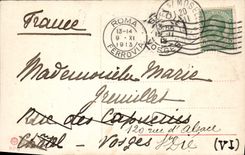 France
ROMA
13-14
9·XI
1913
FERROVIA
Mademoiselle Marie
Grenillet
Rue des Capucins
120 rue d'Alsace
Vosges
(VI)